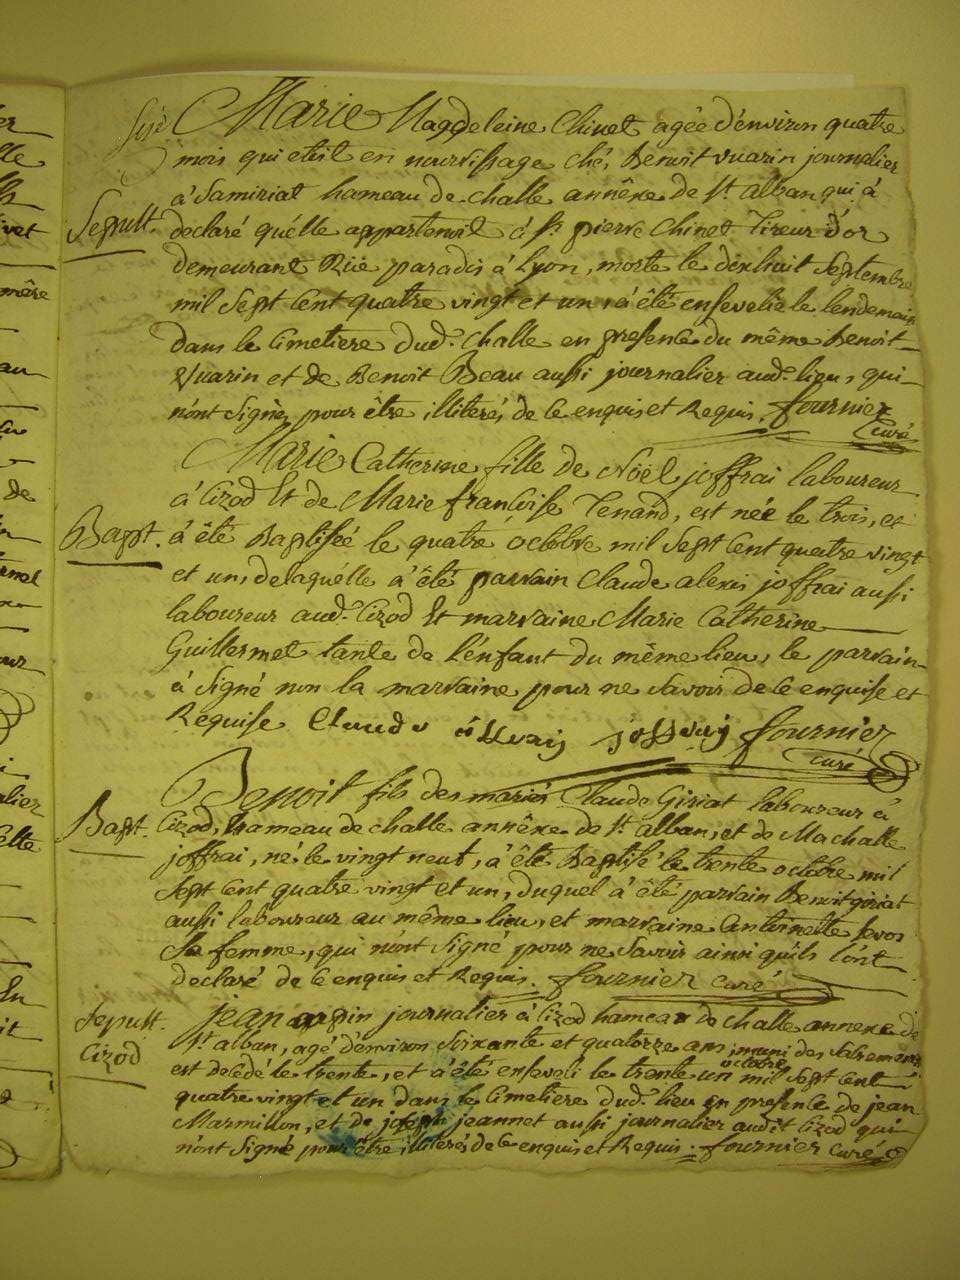 Marie Magdeleine Chinet agée d'environ quatre
mois qui etoit en nourrissage ché, Benoit Vuarin journalier
à Samiriat hameau de challe annêxe de St. alban qui à
Sepult.
declaré qu'élle appartenoit à Sr. pierre Chinet Tireur d'or
demeurant Rüe paradis à Lyon, morte le dixhuit Septembre
mil Sept Cent quatre vingt et un, à été ensevelie le lendemain
dans le Cimetiere dud. Challe en presence du même Benoit
Vuarin et de Benoit Beau aussi journalier aud. lieu, qui
n'ont Signé, pour être illiterés, de ce enquis et Requis. fournier
Curé
Marie Catherine fille de Noël joffrai laboureur
à Cizod Et de Marie françoise Tenand, est née le trois, et
Bapt.
à été Baptisée le quatre octobre mil Sept Cent quatre vingt
et un, de laquélle à été parrain Claude alexis joffrai aussi
laboureur aud. Cizod Et marraine Marie Catherine
Guillermet tante de l'énfant du même lieu, le parrain
à Signé non la marraine pour ne Savoir de ce enquise et
Requise Claude joffray fournier
curé
Benoit fils des mariés Claude Giriat laboureur à
Bapt.
Cizod, hameau de challe annêxe de St. alban, et de Machalle
joffrai, né, le vingt neuf, à été Baptisé le trente octobre mil
Sept Cent quatre vingt et un, duquel à été parrain Benoit giriat
aussi laboureur au même lieu, et marraine Antoinette
Sa femme, qui n'ont Signé pour ne Savoir ainsi qu'ils l'ont
declaré de ce enquis et Requis. fournier curé
Sepult.
Cizod
jean journalier à Cizod hameau de challe annexe de
St. alban, agé d'environ Soixante et quatorze ans, muni des Sacrements
octobre
est decédé le trente, et à été enseveli le trente un mil Sept Cent
quatre vingt et un dans le Cimetiere dud. lieu en presence de jean
Marmillon, et de joseph jeannet aussi journalier audit Cizod qui
n'ont Signé pour être illiterés, de ce enquis et Requis. fournier curé